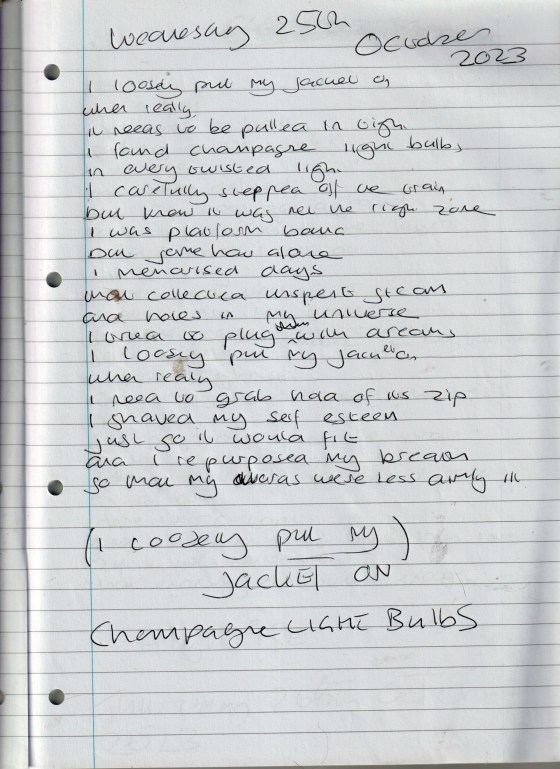 Wednesday 25th
October
2023
I loosely put my jacket on
when really
it needs to be pulled in tight
I found champagne light bulbs
in every twisted light
I carefully stepped off the train
but knew it was not the right zone
I was platform bound
but somehow alone
I memorised days
that collected unspent steam
and holes in my universe
I tried to plug them with dreams
I loosely put my jacket on
when really
I need to grab hold of its zip
I shaved my self esteem
just so it would fit
and I repurposed my breath
so that my words were less ill
(I loosely put my)
jacket on
Champagne LIGHT BulbS